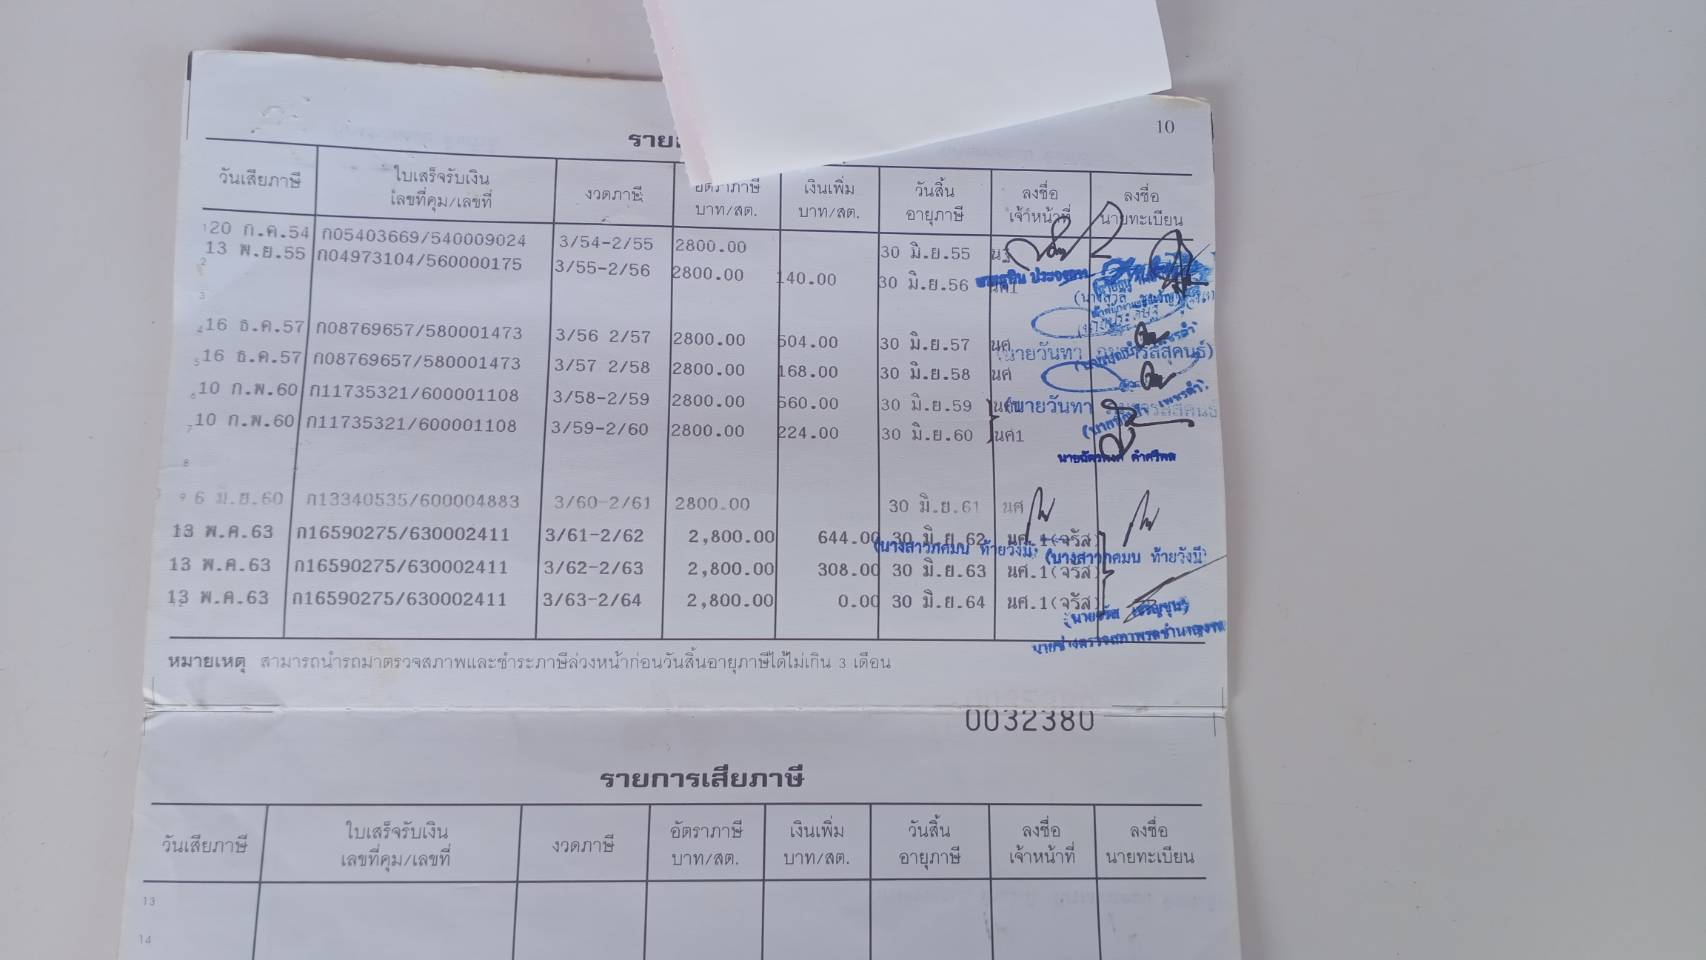 10
วันเสียภาษี ใบเสร็จรับเงิน เลขที่คุม/เลขที่ งวดภาษี อัตราภาษี บาท/สต. เงินเพิ่ม บาท/สต. วันสิ้น อายุภาษี ลงชื่อ เจ้าหน้าที่ ลงชื่อ นายทะเบียน
1 20 ก.ค.54 ก05403669/540009024 3/54-2/55 2800.00 30 มิ.ย.55
2 13 พ.ย.55 ก04973104/560000175 3/55-2/56 2800.00 140.00 30 มิ.ย.56
3
4 16 ธ.ค.57 ก08769657/580001473 3/56 2/57 2800.00 504.00 30 มิ.ย.57 นศ
5 16 ธ.ค.57 ก08769657/580001473 3/57 2/58 2800.00 168.00 30 มิ.ย.58 นศ
6 10 ก.พ.60 ก11735321/600001108 3/58-2/59 2800.00 560.00 30 มิ.ย.59 (นายวันทา
7 10 ก.พ.60 ก11735321/600001108 3/59-2/60 2800.00 224.00 30 มิ.ย.60 นศ1
8
9 6 มิ.ย.60 ก13340535/600004883 3/60-2/61 2800.00 30 มิ.ย.61 นศ
13 พ.ค.63 ก16590275/630002411 3/61-2/62 2,800.00 644.00 30 มิ.ย 62 นศ.1(จรัส)
13 พ.ค.63 ก16590275/630002411 3/62-2/63 2,800.00 308.00 30 มิ.ย.63 นศ.1(จรัส)
13 พ.ค.63 ก16590275/630002411 3/63-2/64 2,800.00 0.00 30 มิ.ย.64 นศ.1(จรัส)
หมายเหตุ สามารถนำรถมาตรวจสภาพและชำระภาษีล่วงหน้าก่อนวันสิ้นอายุภาษีได้ไม่เกิน 3 เดือน
0032380
รายการเสียภาษี
วันเสียภาษี ใบเสร็จรับเงิน เลขที่คุม/เลขที่ งวดภาษี อัตราภาษี บาท/สต. เงินเพิ่ม บาท/สต. วันสิ้น อายุภาษี ลงชื่อ เจ้าหน้าที่ ลงชื่อ นายทะเบียน
13
14